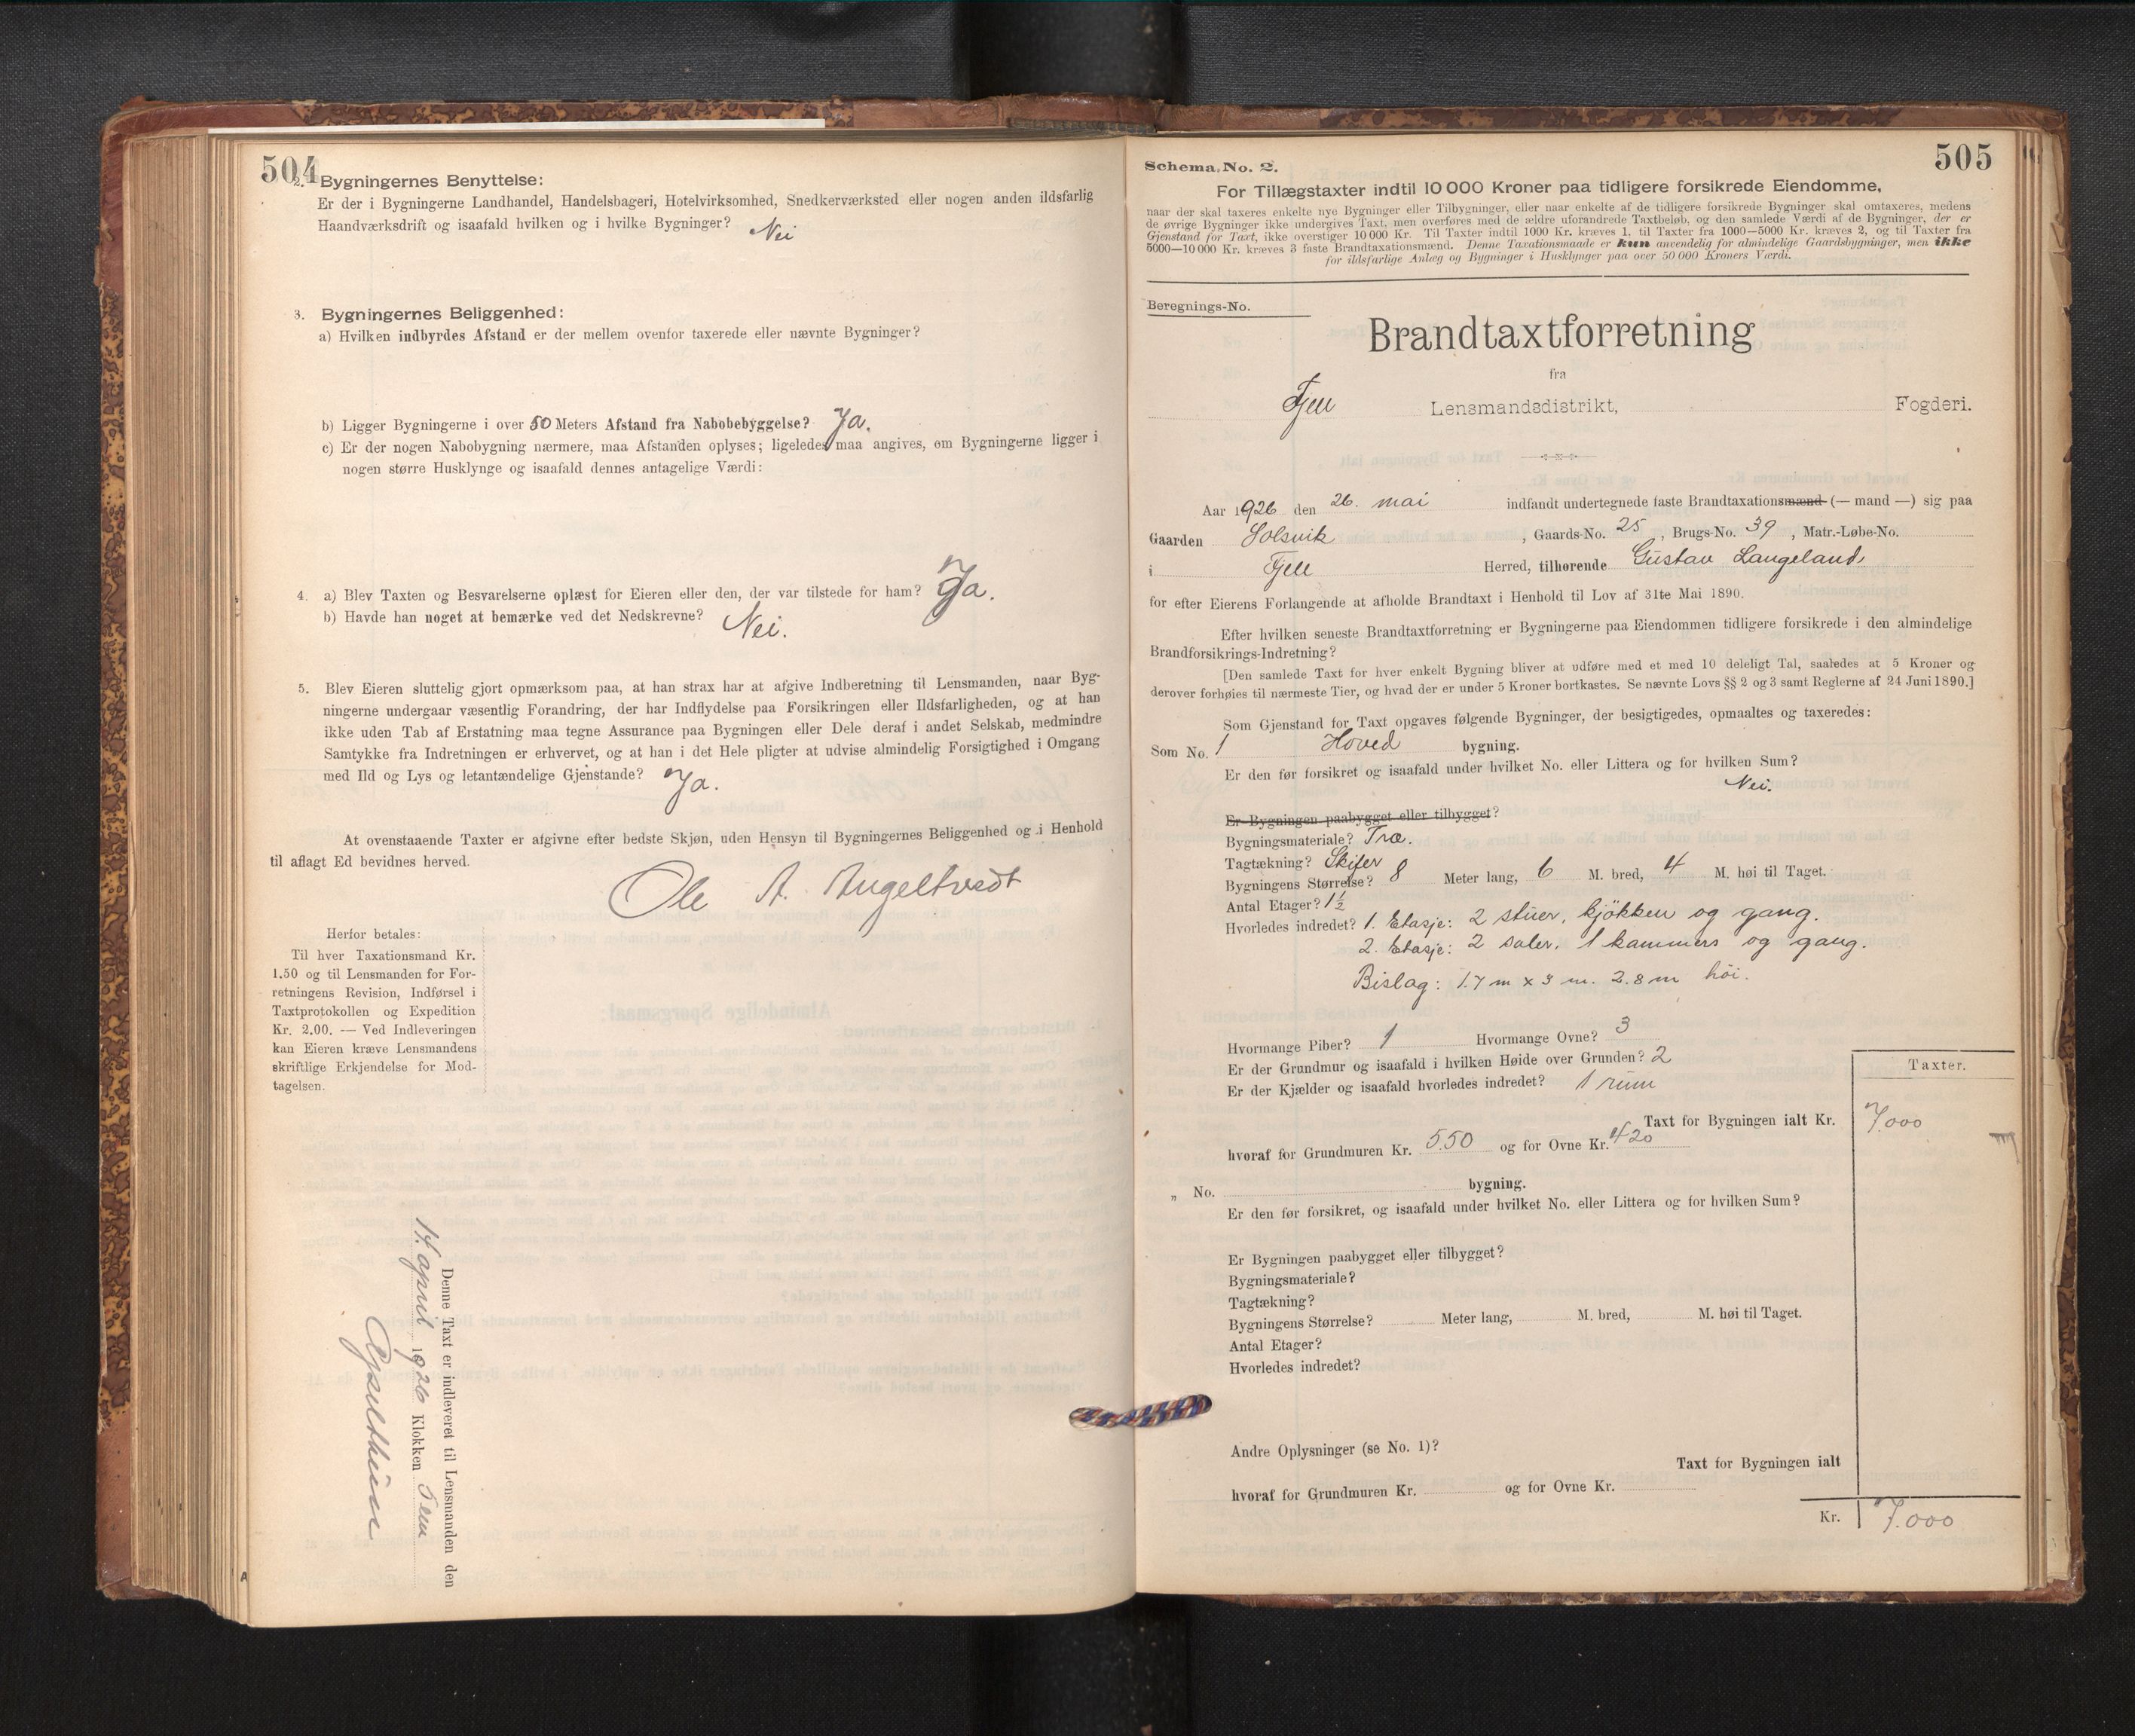 504
2. Bygningernes Benyttelse:
Er der i Bygningerne Landhandel, Handelsbageri, Hotelvirksomhed, Snedkerværksted eller nogen anden ildsfarlig
Haandværksdrift og isaafald hvilken og i hvilke Bygninger? Nei
3. Bygningernes Beliggenhed:
a) Hvilken indbyrdes Afstand er der mellem ovenfor taxerede eller nævnte Bygninger?
b) Ligger Bygningerne i over 50 Meters Afstand fra Nabobebyggelse? Ja.
c) Er der nogen Nabobygning nærmere, maa Afstanden oplyses; ligeledes maa angives, om Bygningerne ligger i
nogen større Husklynge og isaafald dennes antagelige Værdi:
4. a) Blev Taxten og Besvarelserne oplæst for Eieren eller den, der var tilstede for ham? Ja.
b) Havde han noget at bemærke ved det Nedskrevne? Nei.
5. Blev Eieren sluttelig gjort opmærksom paa, at han strax har at afgive Indberetning til Lensmanden, naar Byg-
ningerne undergaar væsentlig Forandring, der har Indflydelse paa Forsikringen eller Ildsfarligheden, og at han
ikke uden Tab af Erstatning maa tegne Assurance paa Bygningen eller Dele deraf i andet Selskab, medmindre
Samtykke fra Indretningen er erhvervet, og at han i det Hele pligter at udvise almindelig Forsigtighed i Omgang
med Ild og Lys og letantændelige Gjenstande? Ja.
At ovenstaaende Taxter er afgivne efter bedste Skjøn, uden Hensyn til Bygningernes Beliggenhed og i Henhold
til aflagt Ed bevidnes herved.
Ole A. Angeltvedt
Herfor betales:
Til hver Taxationsmand Kr.
1.50 og til Lensmanden for For-
retningens Revision, Indførsel i
Taxtprotokollen og Expedition
Kr. 2.00. — Ved Indleveringen
kan Eieren kræve Lensmandens
skriftlige Erkjendelse for Mod-
tagelsen.
Denne Taxt er indleveret til Lensmanden den
14. april 1926 Klokken 5 em
505
Schema No. 2.
For Tillægstaxter indtil 10 000 Kroner paa tidligere forsikrede Eiendomme,
naar der skal taxeres enkelte nye Bygninger eller Tilbygninger, eller naar enkelte af de tidligere forsikrede Bygninger skal omtaxeres, medens
de øvrige Bygninger ikke undergives Taxt, men overføres med de ældre uforandrede Taxtbeløb, og den samlede Værdi af de Bygninger, der er
Gjenstand for Taxt, ikke overstiger 10 000 Kr. Til Taxter indtil 1000 Kr. kræves 1, til Taxter fra 1000—5000 Kr. kræves 2, og til Taxter fra
5000—10 000 Kr. kræves 3 faste Brandtaxationsmænd. Denne Taxationsmaade er kun anvendelig for almindelige Gaardsbygninger, men ikke
for ildsfarlige Anlæg og Bygninger i Husklynger paa over 50 000 Kroners Værdi.
Beregnings-No.
Brandtaxtforretning
fra
Fjell Lensmandsdistrikt, Fogderi.
Aar 1926 den 26. mai indfandt undertegnede faste Brandtaxationsmænd (— mand —) sig paa
Gaarden Solsvik, Gaards-No. 25, Brugs-No. 39, Matr.-Løbe-No.
i Fjell Herred, tilhørende Gustav Langeland
for efter Eierens Forlangende at afholde Brandtaxt i Henhold til Lov af 31te Mai 1890.
Efter hvilken seneste Brandtaxtforretning er Bygningerne paa Eiendommen tidligere forsikrede i den almindelige
Brandforsikrings-Indretning?
[Den samlede Taxt for hver enkelt Bygning bliver at udføre med et med 10 deleligt Tal, saaledes at 5 Kroner og
derover forhøies til nærmeste Tier, og hvad der er under 5 Kroner bortkastes. Se nævnte Lovs §§ 2 og 3 samt Reglerne af 24 Juni 1890.]
Som Gjenstand for Taxt opgaves følgende Bygninger, der besigtigedes, opmaaltes og taxeredes:
Som No. 1 Hoved bygning.
Er den før forsikret og isaafald under hvilket No. eller Littera og for hvilken Sum?
Nei.
Er Bygningen paabygget eller tilbygget?
Bygningsmateriale? Træ.
Tagtækning? Skifer
Bygningens Størrelse? 8 Meter lang, 6 M. bred, 4 M. høi til Taget.
Antal Etager? 1½
Hvorledes indredet? 1. Etasje: 2 stuer, kjökken og gang.
2. Etasje: 2 saler, 1 kammers og gang.
Bislag: 1.7 m x 3 m. 2.8 m höi.
Hvormange Piber? 1 Hvormange Ovne? 3
Er der Grundmur og isaafald i hvilken Høide over Grunden? 2
Er der Kjælder og isaafald hvorledes indredet? 1 rum
Taxter.
Taxt for Bygningen ialt Kr. 7.000
hvoraf for Grundmuren Kr. 550 og for Ovne Kr. 420
„ No. bygning.
Er den før forsikret, og isaafald under hvilket No. eller Littera og for hvilken Sum?
Er Bygningen paabygget eller tilbygget?
Bygningsmateriale?
Tagtækning?
Bygningens Størrelse? Meter lang, M. bred, M. høi til Taget.
Antal Etager?
Hvorledes indredet?
Andre Oplysninger (se No. 1)?
Taxt for Bygningen ialt
hvoraf for Grundmuren Kr. og for Ovne Kr.
Kr. 7.000